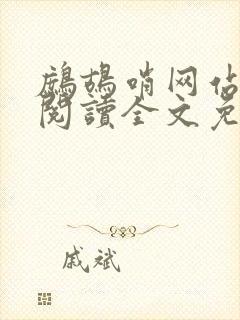 鷓鴣哨网佔
閱讀全文免
戚斌